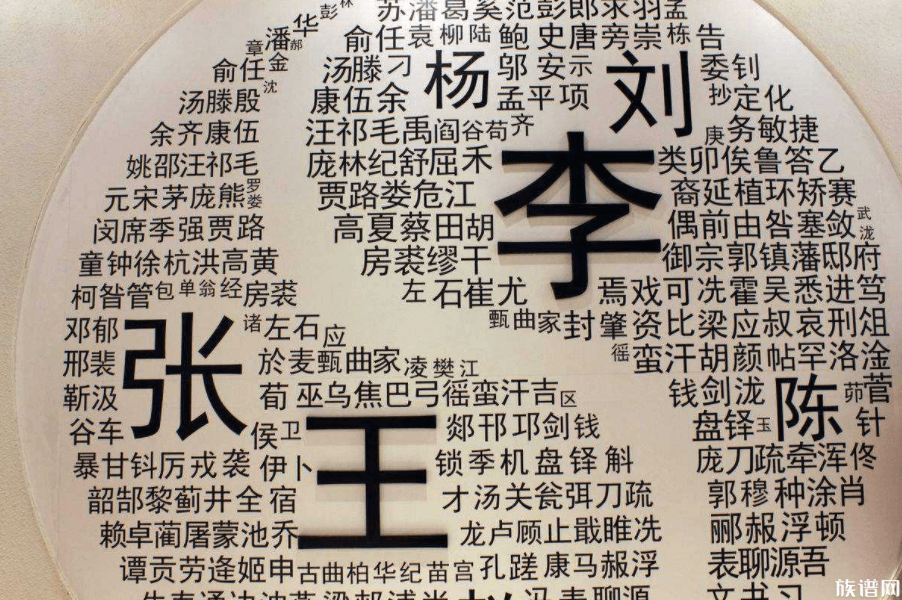 彭 林 苏潘葛奚范彭郎求羽孟
华
章 潘 郝 俞任袁柳陆鲍史唐旁崇栋告
俞任金 汤滕刁 杨 邬安示 刘 委钊
汤滕殷 沈 康伍余 孟平项 抄定化
余齐康伍 汪祁毛禹阎谷荀齐 庚务敏捷
姚邵汪祁毛 庞林纪舒屈禾 李 类卯俟鲁答乙
元宋茅庞熊罗娄 贾路娄危江 裔延植环矫赛
闵席季强贾路 高夏蔡田胡 偶前由咎塞敛武泷
童钟徐杭洪高黄 房裘缪干 御宗郭镇藩邸府
柯昝管包单翁经房裘 左石崔尤 焉戏可冼霍吴悉进笃
邓郁 张 诸左石应 甄曲家封肇资比梁应叔哀刑俎
邢裴 於麦甄曲家凌樊江 徭蛮汗胡颜帖罕洛淦
靳汲 荀巫乌焦巴弓徭蛮汗吉区 钱剑泷 陈 茆菅
谷车 侯卫 王 郯邗邛剑钱 盘铎玉 针
暴甘钭厉戎袭伊卜 锁季机盘铎斛 庞刀疏牵浑佟
韶郜黎蓟井全宿 才汤关瓮弭刀疏 郭穆种涂肖
赖卓蔺屠蒙池乔 龙卢顾止戢睢冼 郦赧浮顿
谭贡劳逄姬申古曲柏华纪苗宫孔蹉康马赧浮 表聊源吾
冯表聊源 文书习
族谱网